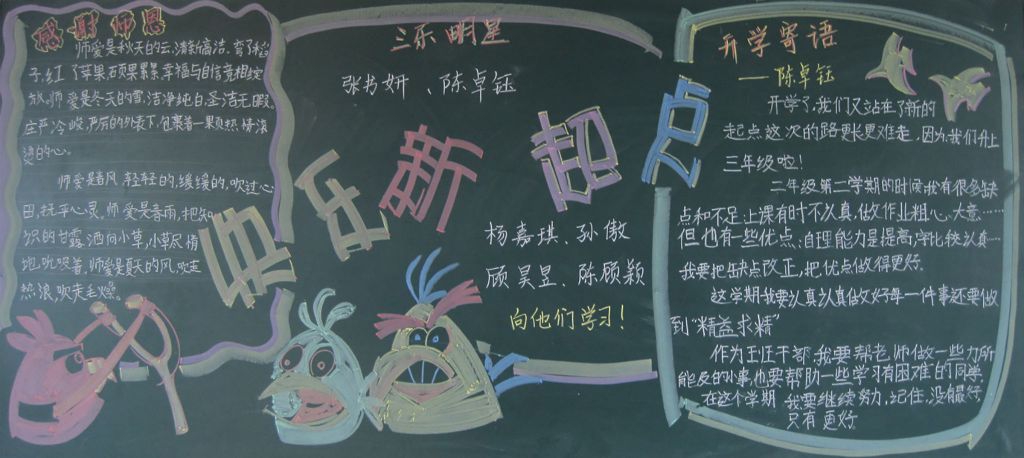 感谢师恩
师爱是秋天的云,清新高洁、弯了稻
子,红了苹果,硕果累累,幸福与自信竞相绽
放。师爱是冬天的雪,洁净纯白,圣洁无暇,
庄严冷峻,严厉的外表下,包裹着一颗炽热情滚
烫的心。
师爱是春风,轻轻的,缓缓的,吹过心
田,抚平心灵,师爱是春雨,把知
识的甘露,洒向小草,小草尽情
地吮吸着,师爱是夏天的风,吹走
热浪,吹走毛燥。
三乐明星
张书妍、陈卓钰
快乐新起点
杨嘉琪、孙傲
顾昊昱、陈顾颖
向他们学习!
开学寄语
——陈卓钰
开学了,我们又站在了新的
起点,这次的路更长更难走,因为我们升上
三年级啦!
二年级第二学期的时候,我有很多缺
点和不足:上课有时不认真,做作业粗心、大意……
但也有一些优点:自理能力是提高,字比较认真…
我要把缺点改正,把优点做得更好。
这学期我要认真认真做好每一件事还要做
到“精益求精”
作为班干部,我要帮老师做一些力所
能及的小事,也要帮助一些学习有困难的同学。
在这个学期,我要继续努力,记住,没有最好
只有更好